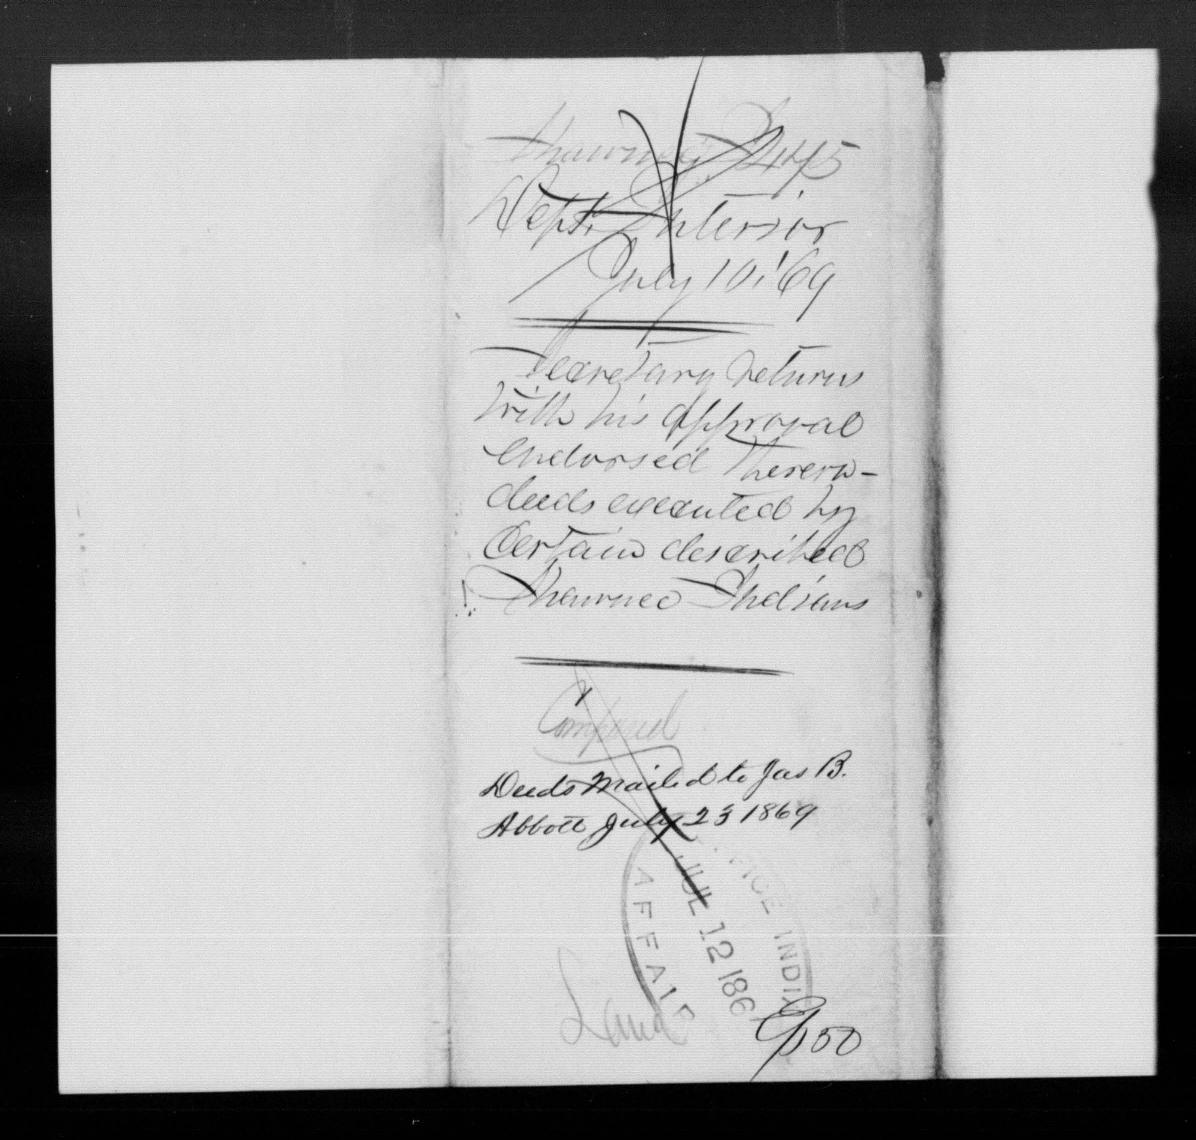 Shawnee I. 445
Dept. Interior
July 10, '69
Secretary returns
with his approval
endorsed thereon-
deeds executed by
Certain described
Shawnee Indians
Deeds Mailed to Jas B.
Abbott July 23 1869
OFFICE INDIA
JUL 12 186
AFFAIR
Land